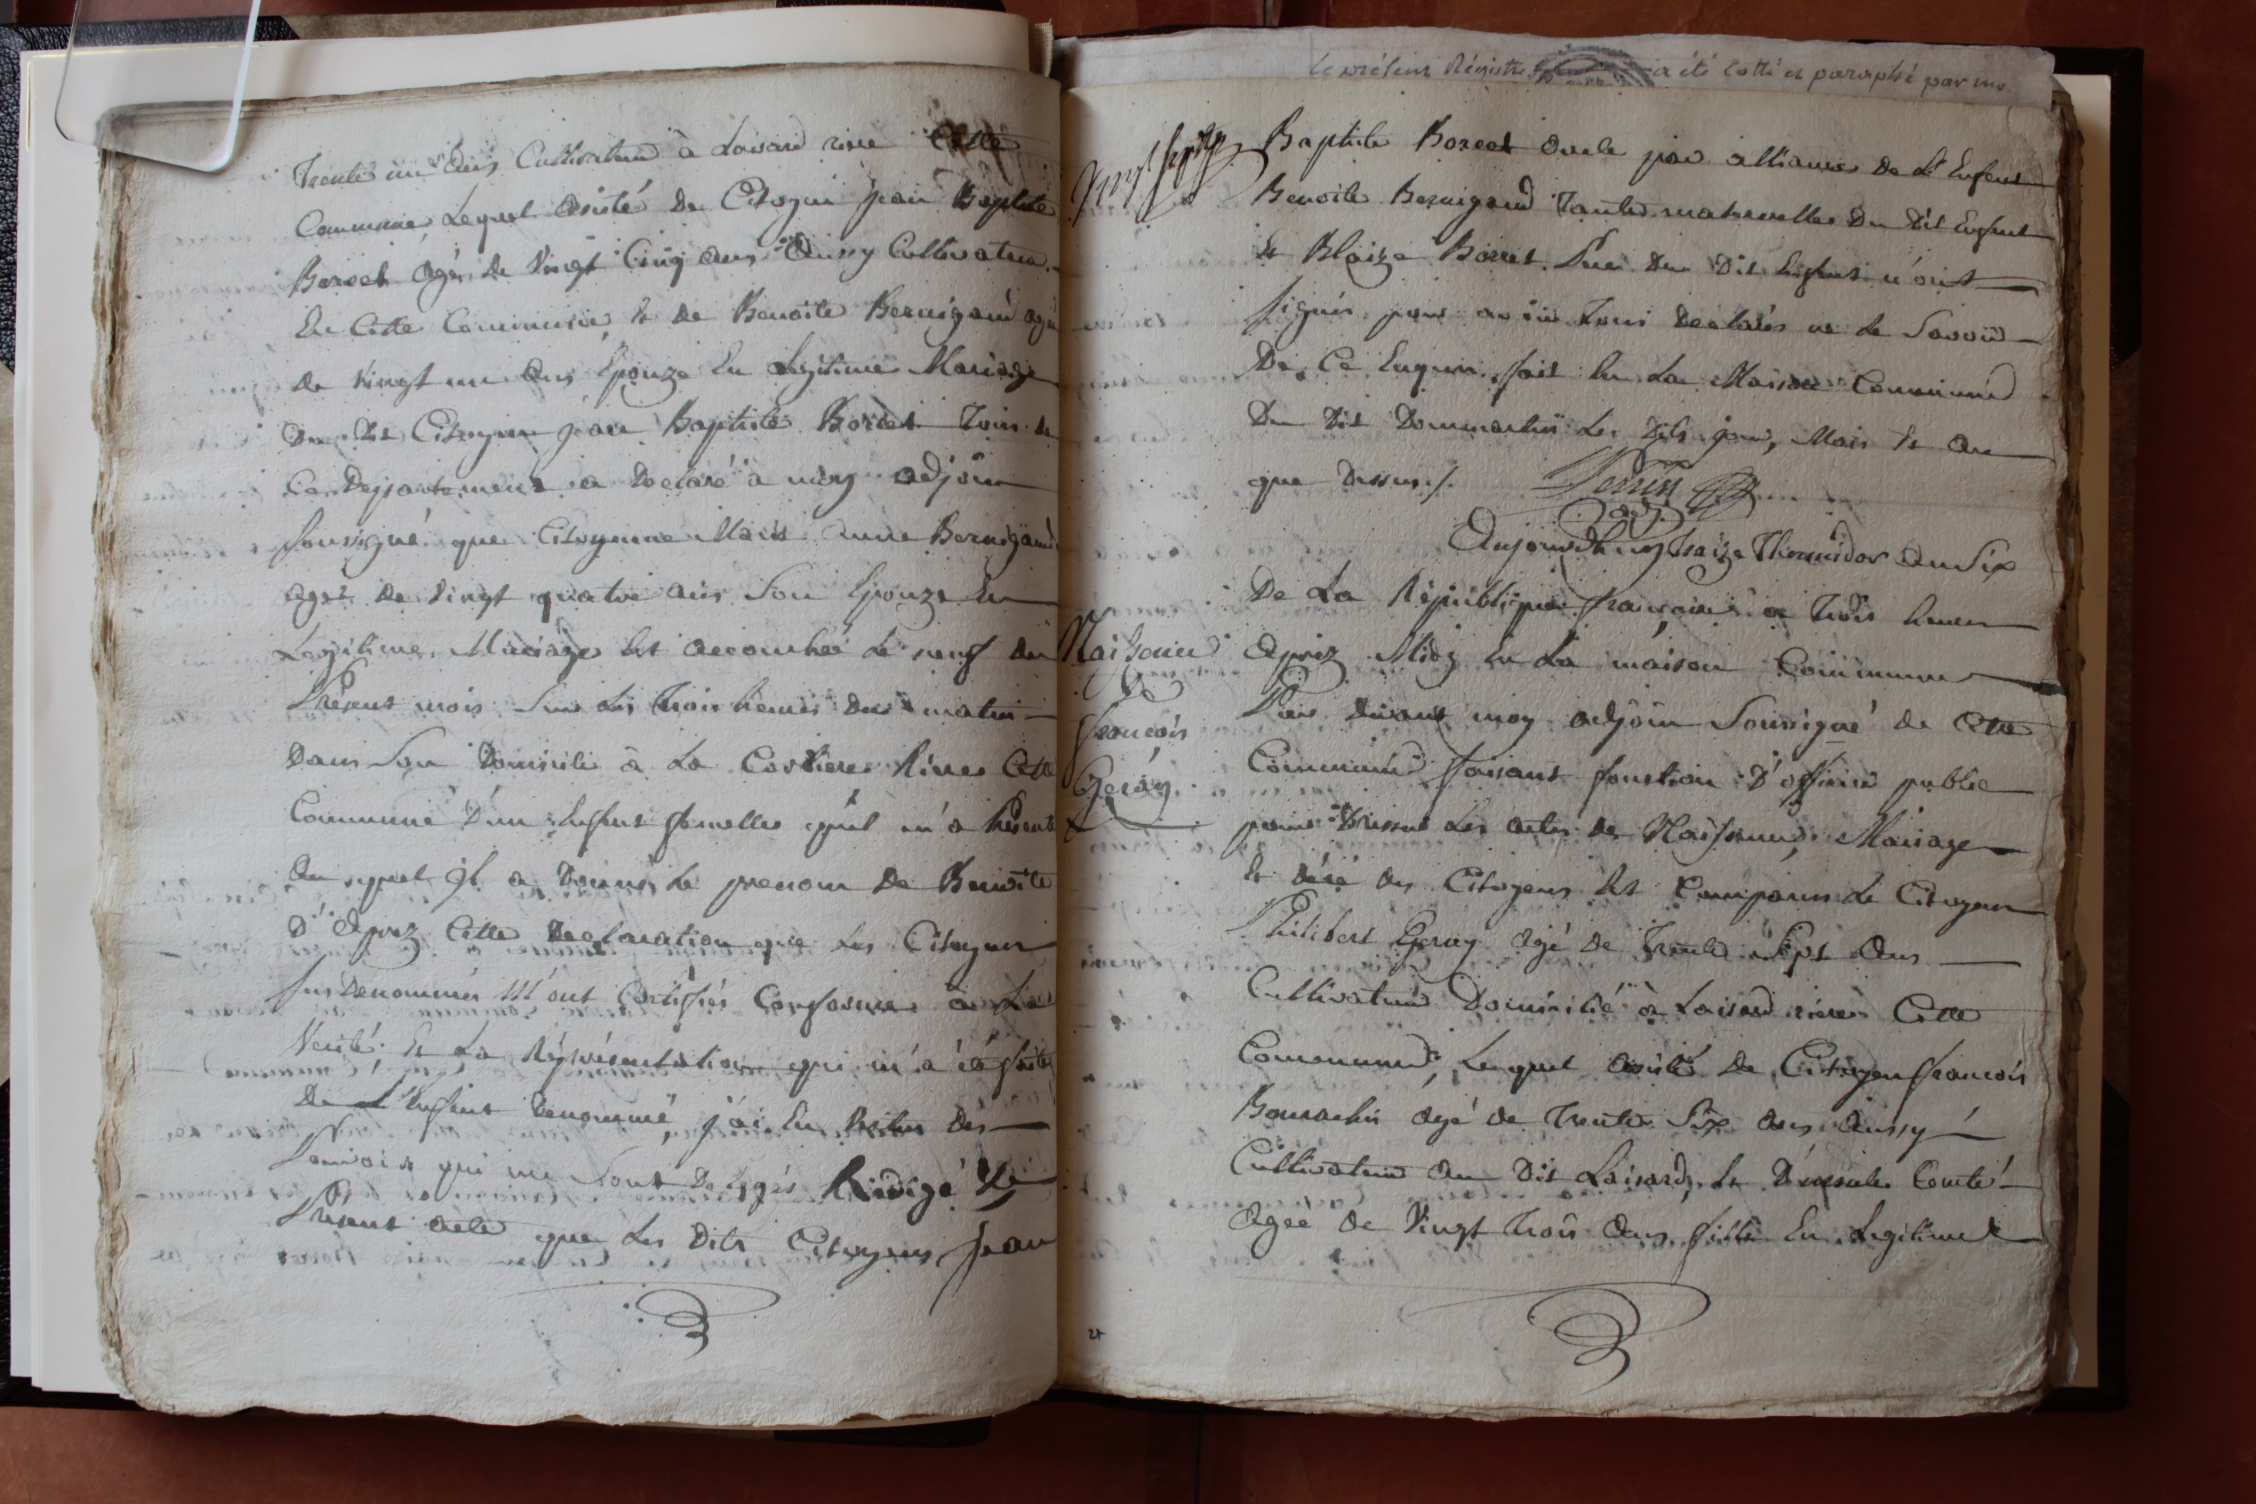 Trente un ans Cultivateur à Loisard riere Cette
Commune, Lequel assisté De Citoyen jean Baptiste
Borcet agé De Vingt Cinq ans Aussy Cultivateur
En Cette Commune, & de Benoite Bernigaud agé
de Vingt un Ans Epouze En Legitime Mariage
Du dit Citoyen jean Baptiste Borcet Tous de
Ce Departement a Declaré a moy adjoin
soussigné que Citoyenne Marie anne Bernigaud
agé De Vingt quatre ans Son Epouze En
Legitime Mariage Est accouchée Le neuf du
Présent mois Sur Les Trois heures du matin
Dans Son Domicile à La Rière Cette
Commune D'un Enfent femelle qu'il m'a Présenté
Au quel Il a Donné Le prenom De Benoite
D'Aprez Cette Declaration que Les Citoyens
susDenommés M'ont Certifiés Conforme a La
Verité, & La Réprésentation qui m'a été faite
De L'Enfent Denommé, j'ai En Vertu Des
Pouvoirs qui me Sont Delegés Rédigé Le
Présent acte que Les Dits Citoyens Jean
Le présent Régistre a été cotté et paraphé par mo
Baptiste Borcet Oncle par alliance De Lt Enfent
Benoite Bernigaud Tante maternelle Du Dit Enfent
& Blaize Borcet Pere Du Dit Enfent n'ont
signés pour avoir Tous Declarés ne Le Savoir
De Ce Enquis, fait En La Maison Commune
Du Dit Dommartin Les Dits jour, Mois & an
que Dessus /.
Perrin
adj.
Aujourdhuy Traize Thermidor An Six
De La République française a Trois heures
Naissance
De
francois
Geray
Aprez Midy En La maison Commune
Par devant moy adjoin Soussigné de Cette
Commune faisant fonction D'officier public
pour Dresser Les actes de Naissance, Mariage
& décé des Citoyens Est Comparus Le Citoyen
Philibert Geray agé de Trente Sept Ans
Cultivateur Domicilié à Loisard riere Cette
Commune, Lequel assisté De Citoyen francois
agé de Trente Six ans Aussy
Cultivateur au Dit Loisard, & D'ursule Comte
Agee de Vingt Trois Ans fille En Legitime